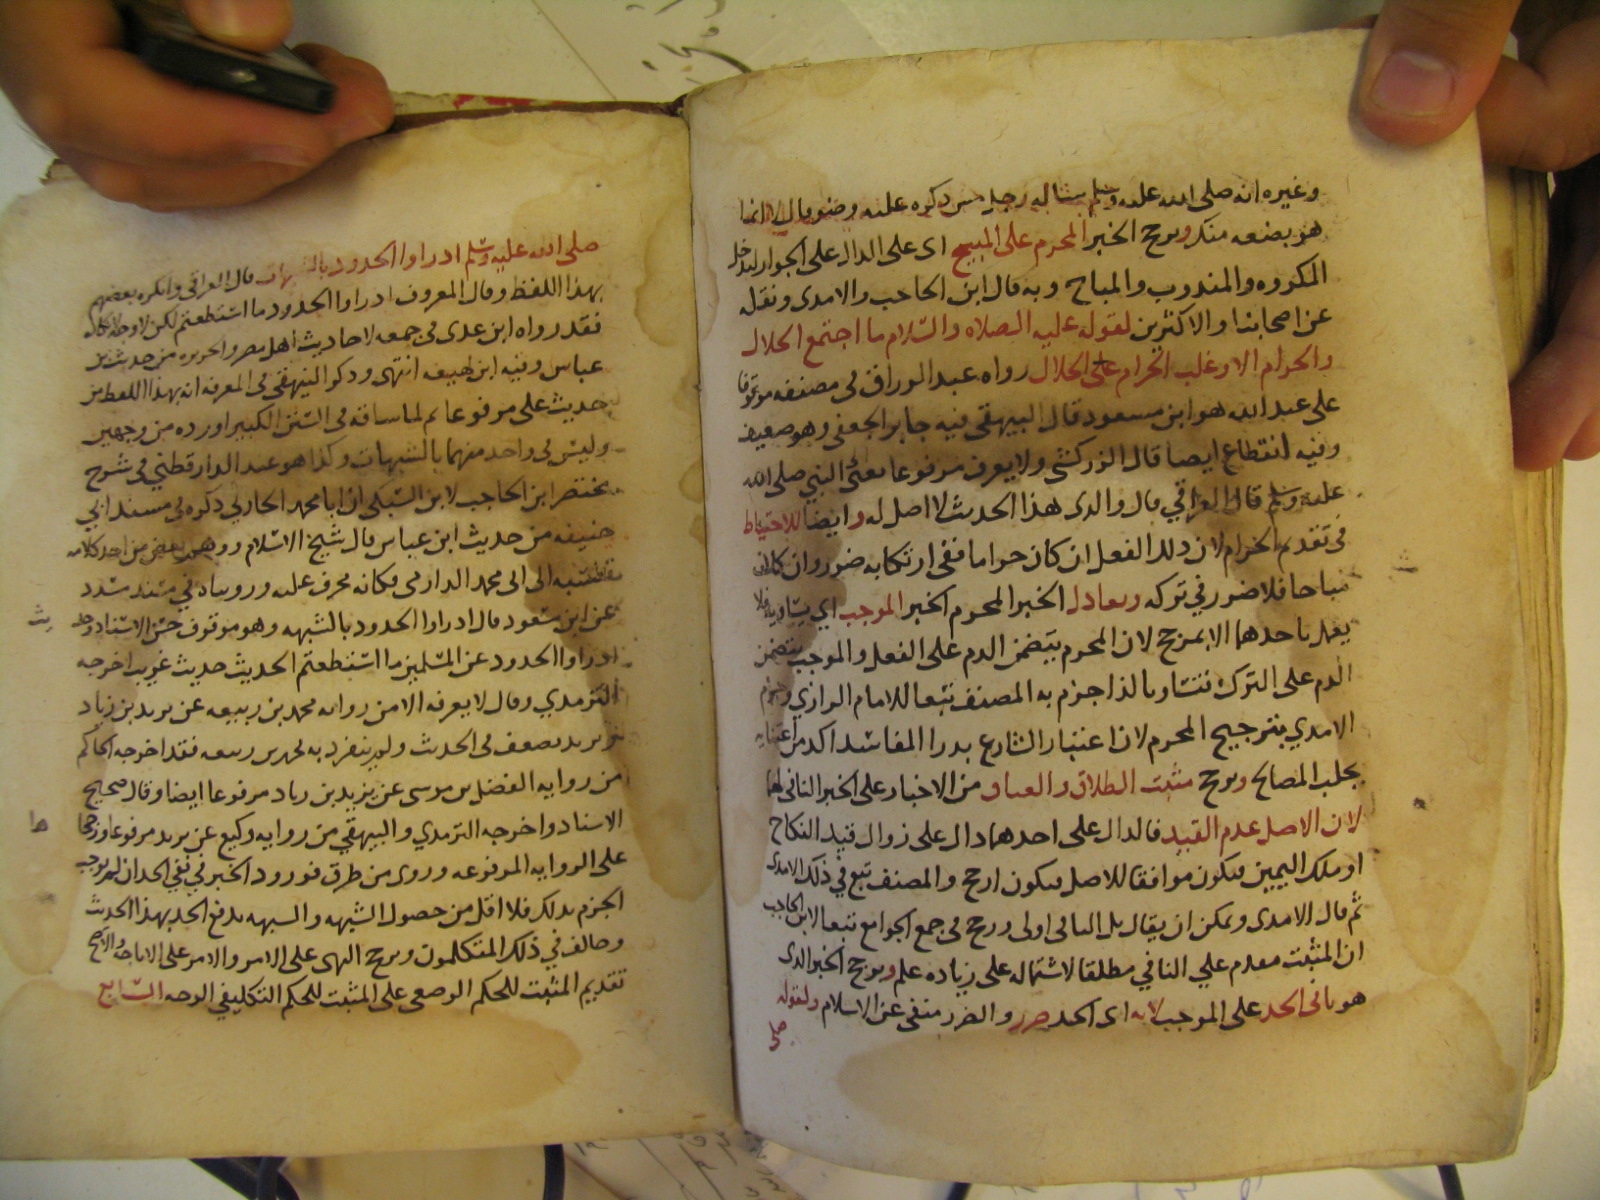 وغيره انه صلى الله عليه وسلم ساله رجل مس ذكره عليه وضو قال لا انما
هو بضعه منك ويرجح الخبر المحرم على المبيح اى على الدال على الجواز ليدخل
المكروه والمندوب والمباح وبه قال ابن الحاجب والامدى ونقله
عن اصحابنا والاكثرين لقوله عليه الصلاه والسلام ما اجتمع الحلال
والحرام الا وغلب الحرام على الحلال رواه عبد الرزاق فى مصنفه موقوفا
على عبد الله هو ابن مسعود قال البيهقي فيه جابر الجعفى وهو ضعيف
وفيه انقطاع ايضا قال الزركشي ولا يعرف مرفوعا يعنى النبي صلى الله
عليه وسلم قال العراقي قال والدى هذا الحديث لا اصل له وايضا للاحتياط
فى تقديم الحرام لان ذلك الفعل ان كان حراما ففى ارتكابه ضرر وان كان
مباحا فلا ضرر في تركه ويعادل الخبر المحرم الخبر الموجب اي يساويه فلا
يعمل باحدهما الا بمرجح لان المحرم يتضمن الذم على الفعل والموجب يتضمن
الذم على الترك فتساويا لذا جزم به المصنف تبعا للامام الرازي وجزم
الامدي بترجيح المحرم لان اعتبار الشارع بدرا المفاسد اكد من اعتنايه
بجلب المصالح ويرجح مثبت الطلاق والعتاق من الاخبار على الخبر النافى لهما
لان الاصل عدم القيد فالدال على احدهما دال على زوال قيد النكاح
او ملك اليمين فيكون موافقا للاصل فيكون ارجح والمصنف تبع في ذلك الامدى
ثم قال الامدى ويمكن ان يقال بل النافى اولى ورجح فى جمع الجوامع تبعا لابن الحاجب
ان المثبت مقدم علي النافي مطلقا لاشتماله على زياده علم ويرجح الخبر الذى
هو نافى الحد على الموجب لانه اى الحد ضرر والضرر منفى عن الاسلام ولقوله
صلى
صلى الله عليه وسلم ادراوا الحدود بالشبهات قال العراقي وانكره بعضهم
بهذا اللفظ وقال المعروف ادراوا الحدود ما استطعتم لكن لا وجه لانكاره
فقد رواه ابن عدى فى جمعه لاحاديث اهل مصر والجزيره من حديث بن
عباس وفيه ابن لهيعه انتهى وذكر البيهقي فى المعرفه انه بهذا اللفظ من
حديث على مرفوعا ثم لما ساقه فى السنن الكبير اورده من وجهين
وليس فى واحد منهما بالشبهات وكذا هو عند الدارقطني في شرح
مختصر ابن الحاجب لابن السبكى ان ابا محمد الحارثي ذكره فى مسند ابي
حنيفه من حديث ابن عباس قال شيخ الاسلام ووهم بعض من اخذ كلامه
فنسبه الى ابى محمد الدارمى فكانه تحرف عليه ورويناه في مسند مسدد
عن ابن مسعود قال ادراوا الحدود بالشبهه وهو موقوف حسن الاسناد وحديث
ادراوا الحدود عن المسلمين ما استطعتم الحديث حديث غريب اخرجه
الترمذي وقال لا يعرفه الا من روايه محمد بن ربيعه عن يزيد بن زياد
يزيد يضعف فى الحديث ولم ينفرد به محمد بن ربيعه فقد اخرجه الحاكم
من روايه الفضل بن موسى عن يزيد بن زياد مرفوعا ايضا وقال صحيح
الاسناد واخرجه الترمذي والبيهقي من روايه وكيع عن يزيد مرفوعا ورجحا
على الروايه المرفوعه وروى من طرق فورود الخبر في نفي الحد ان لم يوجب
الجزم بذلك فلا اقل من حصول الشبهه والشبهه يدفع الحد بهذا الحديث
وخالف في ذلك المتكلمون ويرجح النهى على الامر والامر على الاباحه والاصح
تقديم المثبت للحكم الوضعى على المثبت للحكم التكليفي الوجه السابع